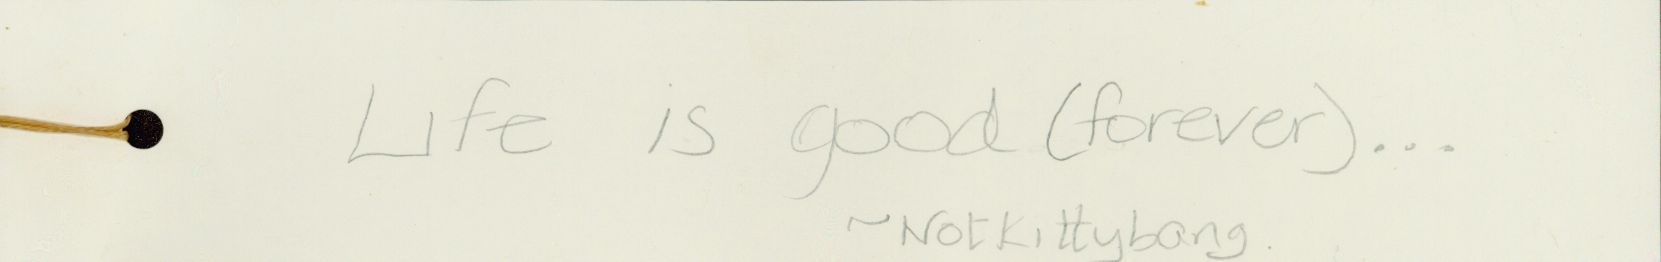 Life is good (forever)...
~Notkittybang.